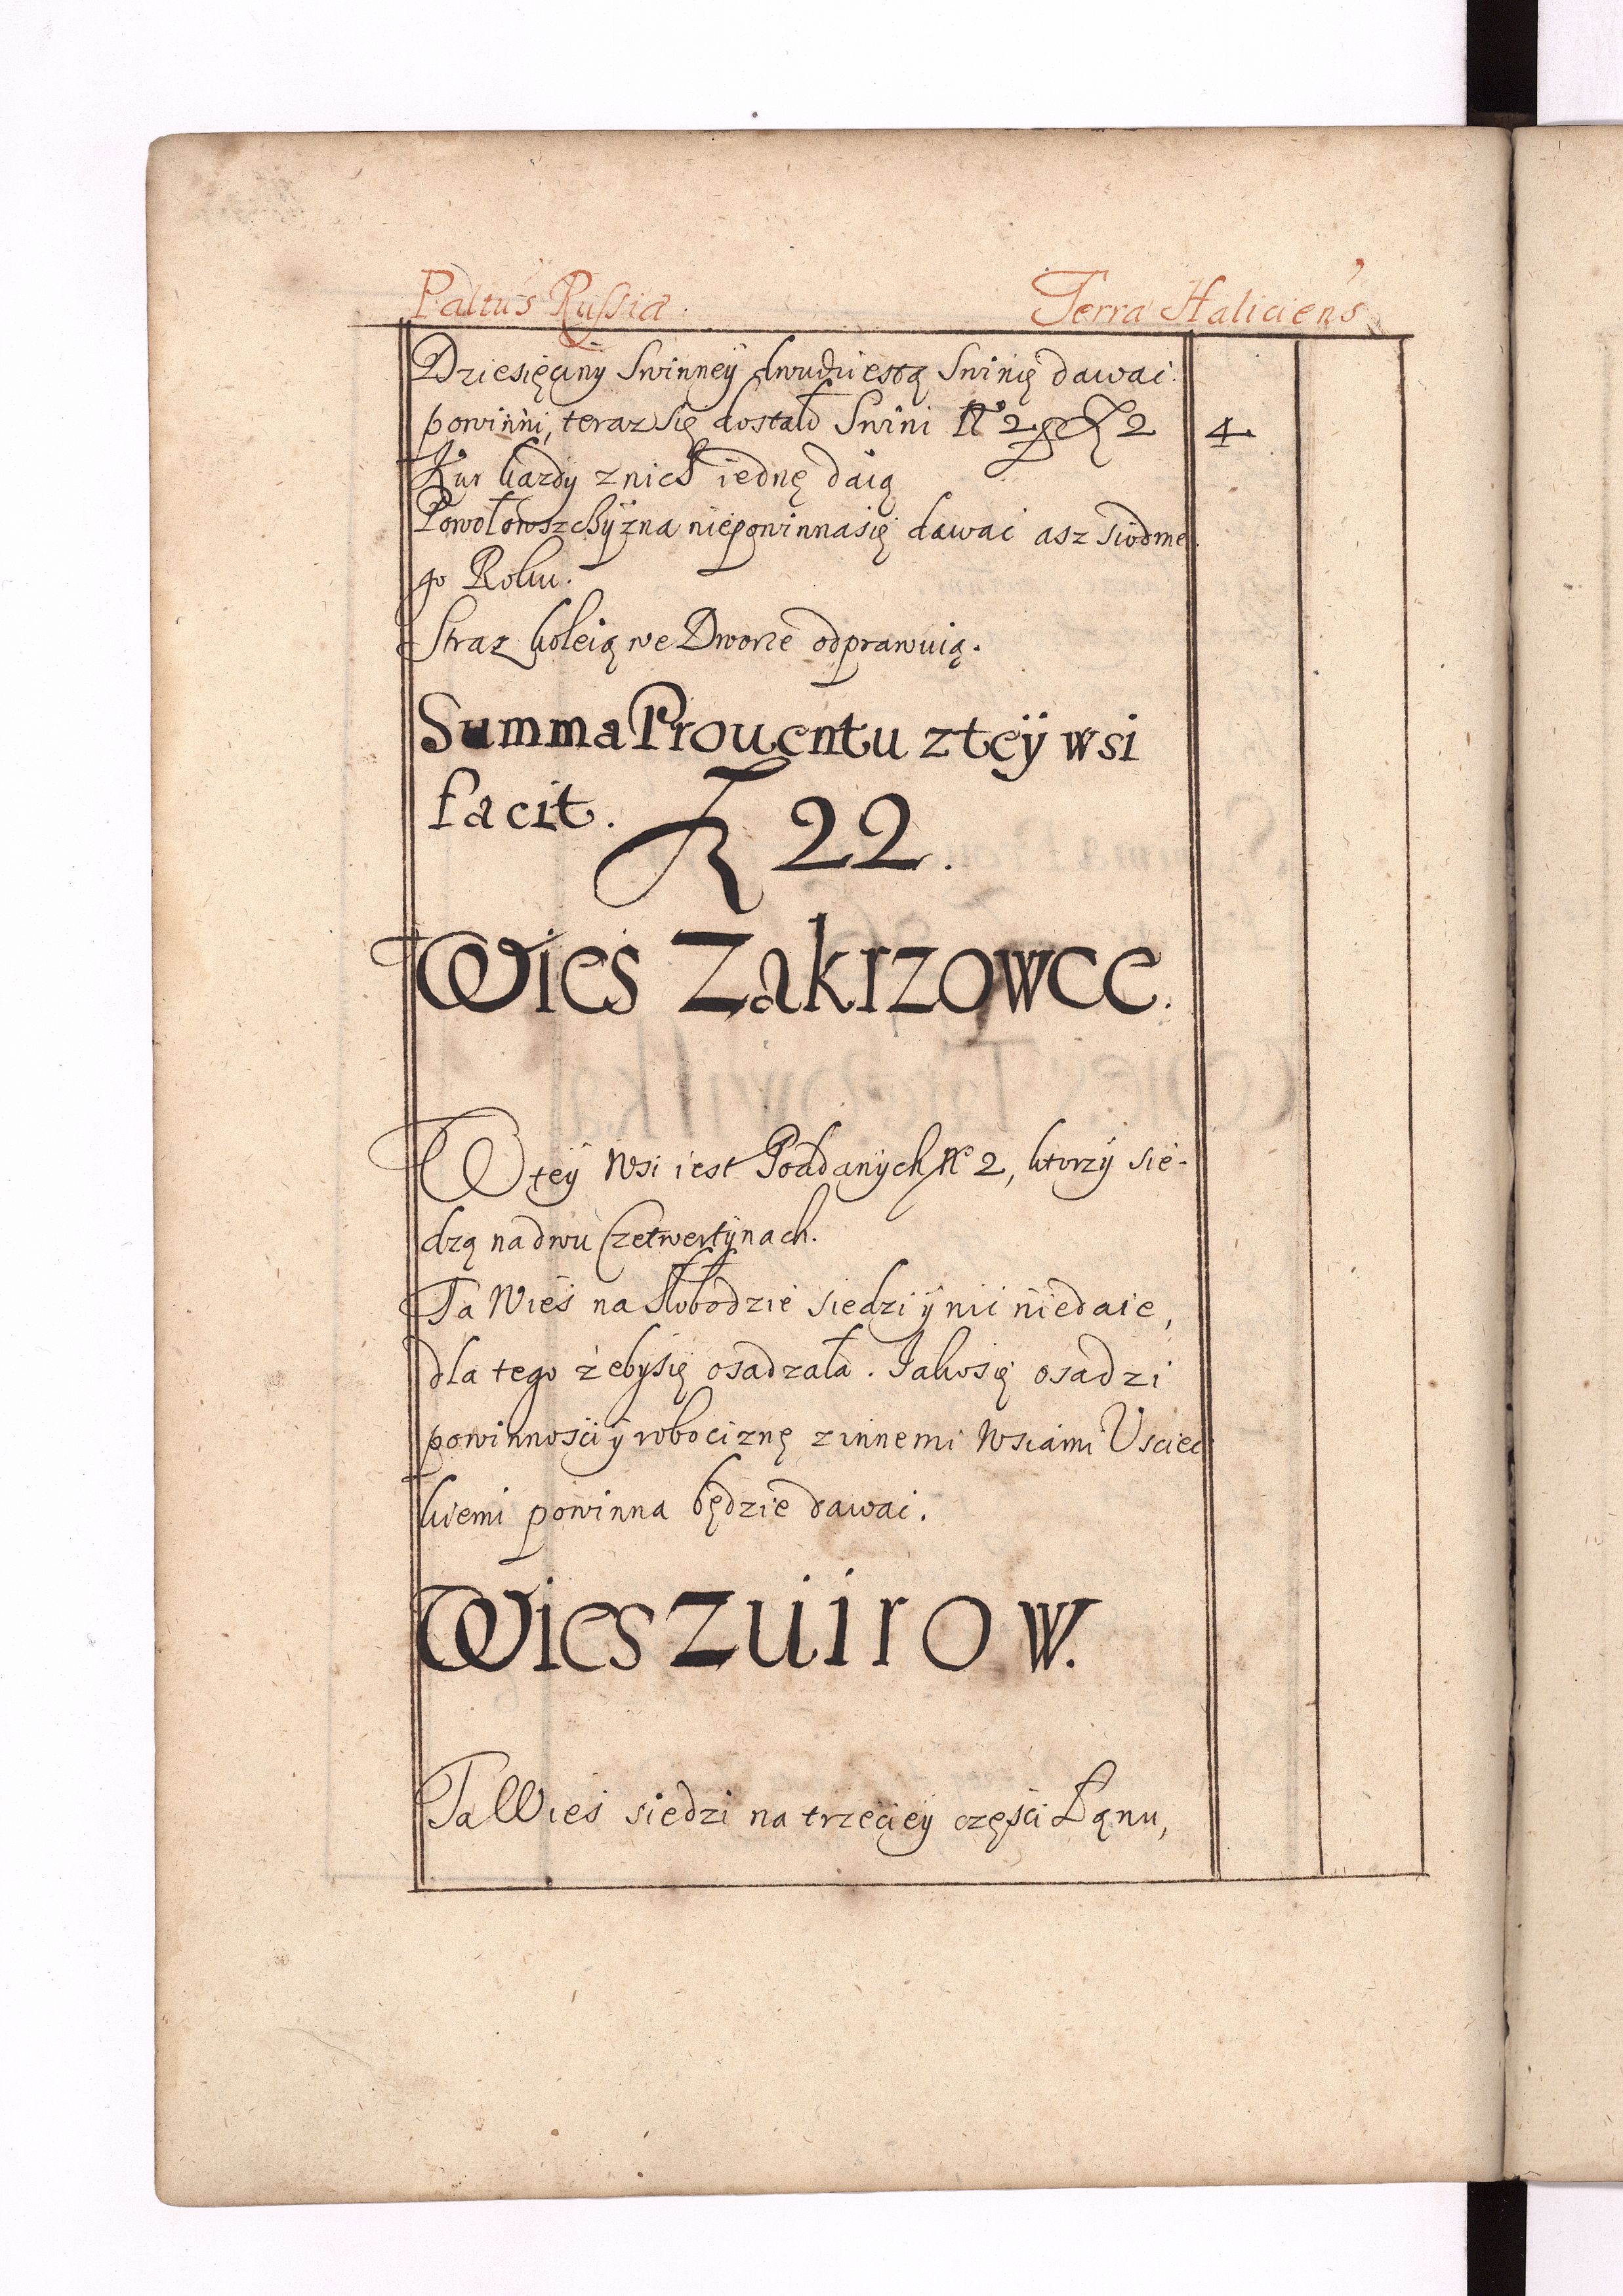 P.altus Russiæ. Terra Haliciens
Dziesięciny Swinney dwudziestą Swinię dawać
powinni, teraz się dostało Swini N° 2 per fl 2 4
Kur każdy z nich iednę daią
Powołowszchyzna niepowinnasię dawać asz siodme
go Roku.
Straz koleią we Dworze odprawuią.
Summa Prouentu z teÿ wsi
facit. fl 22.
Wies Zakrzowce.
W teÿ Wsi iest Poddanÿch N° 2, ktorzÿ sie-
dzą na dwu Czetwertÿnach.
Ta Wieś na Słobodzie siedzi ÿ nic niedaie,
dla tego żebÿsię osadzała. Jakosię osadzi
powinności ÿ robociznę z innemi Wsiami Usciec
kiemi powinna będzie dawać.
Wies Zuirow.
Ta Wieś siedzi na trzecieÿ części Łąnu,